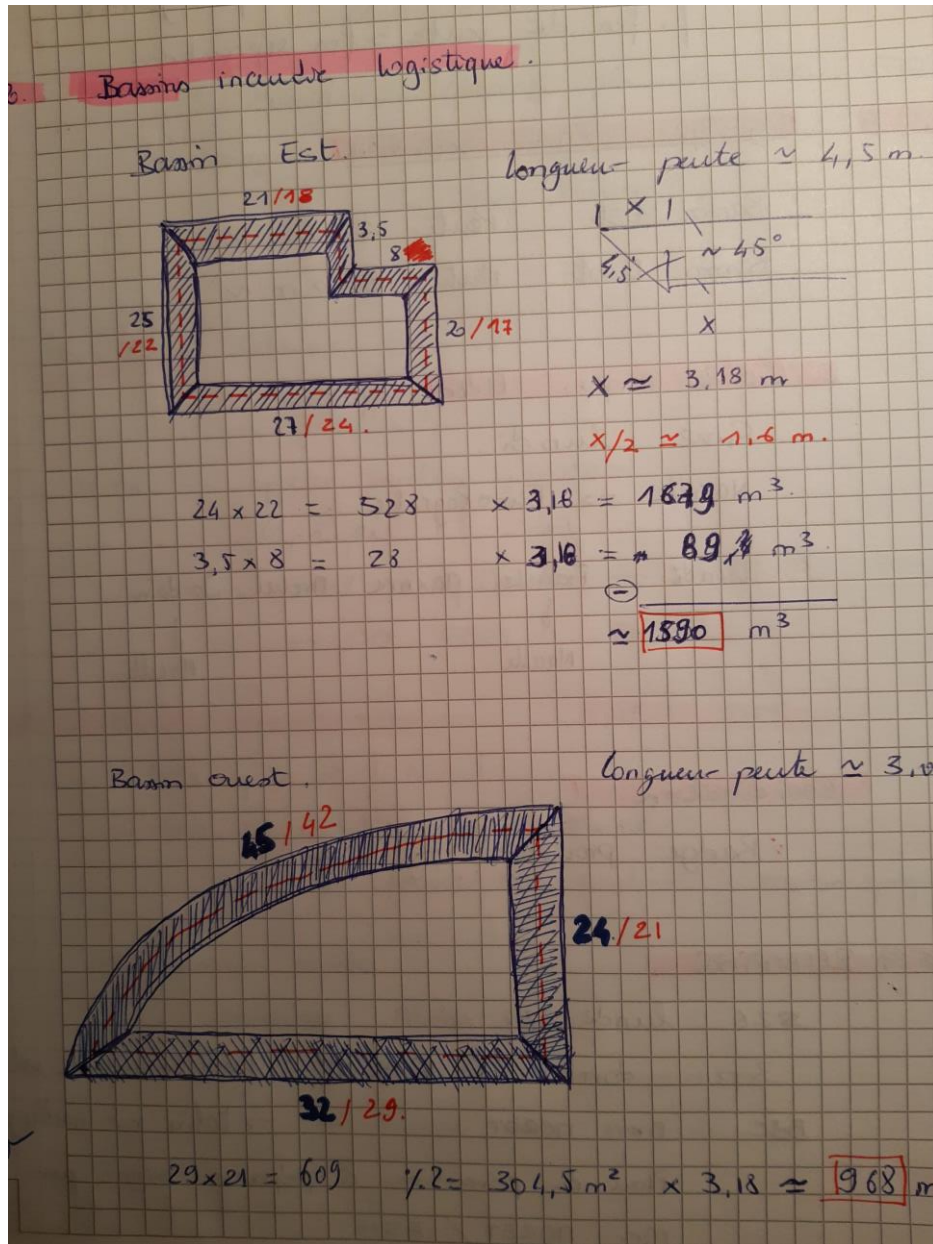 3. Bassins incendie logistique.
Bassin Est.
Longueur pente ≃ 4,5 m.
21/18
3,5
8
X
4,5
~ 45°
X
25
/22
20/17
27/24.
X ≃ 3,18 m
X/2 ≃ 1,6 m.
24 x 22 = 528 x 3,18 = 1679 m³.
3,5 x 8 = 28 x 3,18 = 89,1 m³.
⊖
≃ 1590 m³
Bassin ouest.
Longueur pente ≃ 3,
45/42
24/21
32/29.
29x21 = 609 /.2= 304,5 m² x 3,18 ≃ 968 m